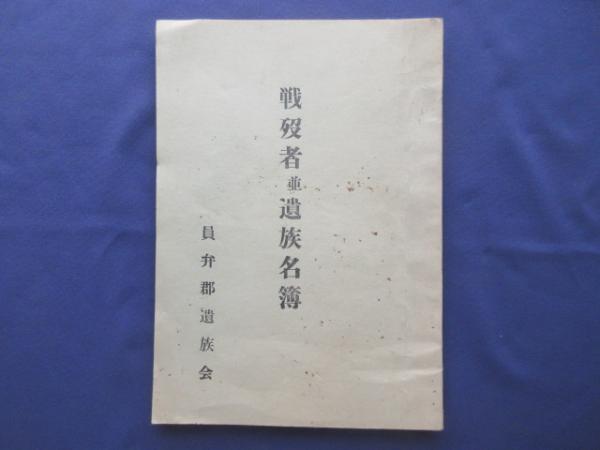 戦歿者並遺族名簿
員弁郡遺族会